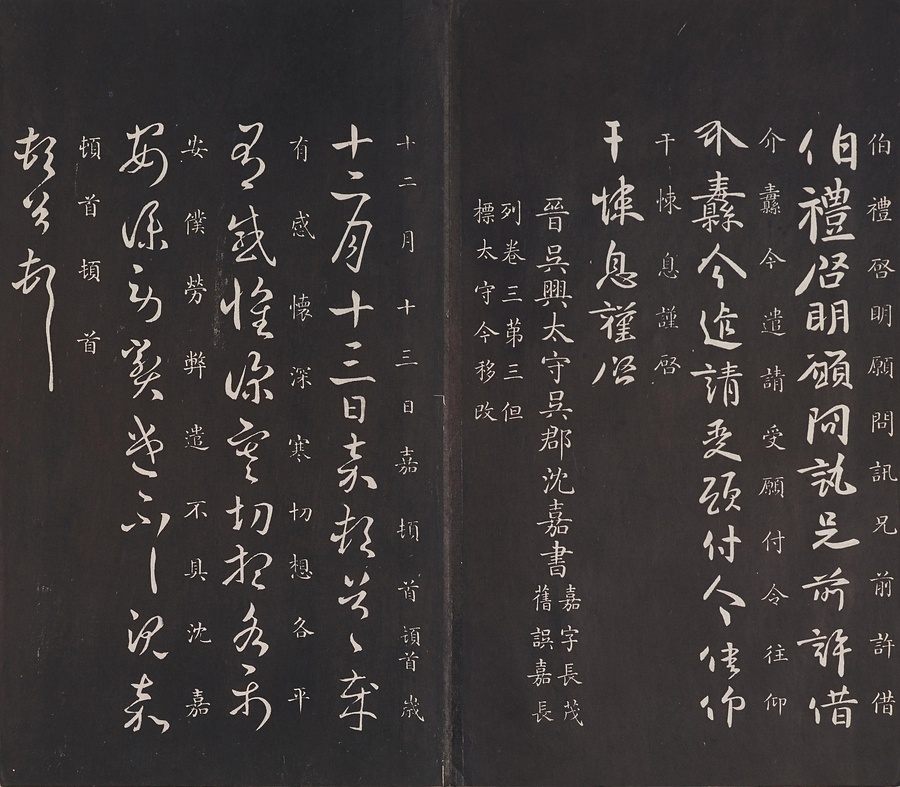 伯禮啓明願問訊兄前許借
伯禮啓明願問訊兄前許借
介纛今遣請受願付令往仰
介纛今遣請受願付令往仰
干悚息謹啓
干悚息謹啓
晉吳興太守吳郡沈嘉書
嘉字長茂
舊誤嘉長
列卷三第三但
標太守今移改
十二月十三日嘉頓首頓首歲
十二月十三日嘉頓首〻歲
有感懷深寒切想各平
有感懷深寒切想各平
安僕勞弊遣不具沈嘉
安深勞弊遣不具沈嘉
頓首頓首
頓首頓首